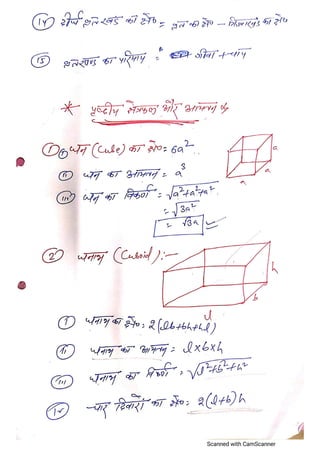 (14) दीर्घ वृत्तखण्ड का क्षे० = वृत्त का क्षे० − त्रिज्यखण्ड का क्षे०
(15) वृत्तखण्ड का परिमाप = जीवा + चाप
* पृष्ठीय क्षेत्रफल और आयतन
(1) (i) घन (Cube) का क्षे० = 6a²
(ii) घन का आयतन = a³
(iii) घन का विकर्ण = √a²+a²+a²
= √3a²
= √3a
a
a
a
a
(2) घनाभ (Cuboid) :-
h
b
l
(i) घनाभ का क्षे० = 2(lb+bh+hl)
(ii) घनाभ का आयतन = l×b×h
(iii) घनाभ का विकर्ण = √l²+b²+h²
(iv) चार दिवारों का क्षे० = 2(l+b)h
Scanned with CamScanner